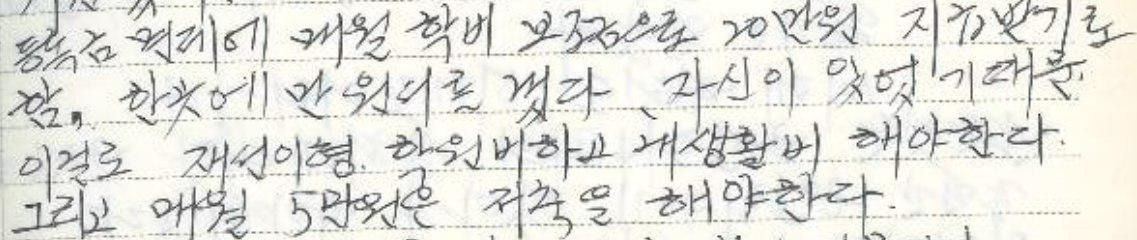 등록금 면제에 매월 학비 보조금으로 20만원 지급받기로
함. 한곳에만 원서를 냈다. 자신이 있었기 때문.
이걸로 재선이형. 학원비하고 내 생활비 해야한다.
그리고 매월 5만원은 저축을 해야한다.